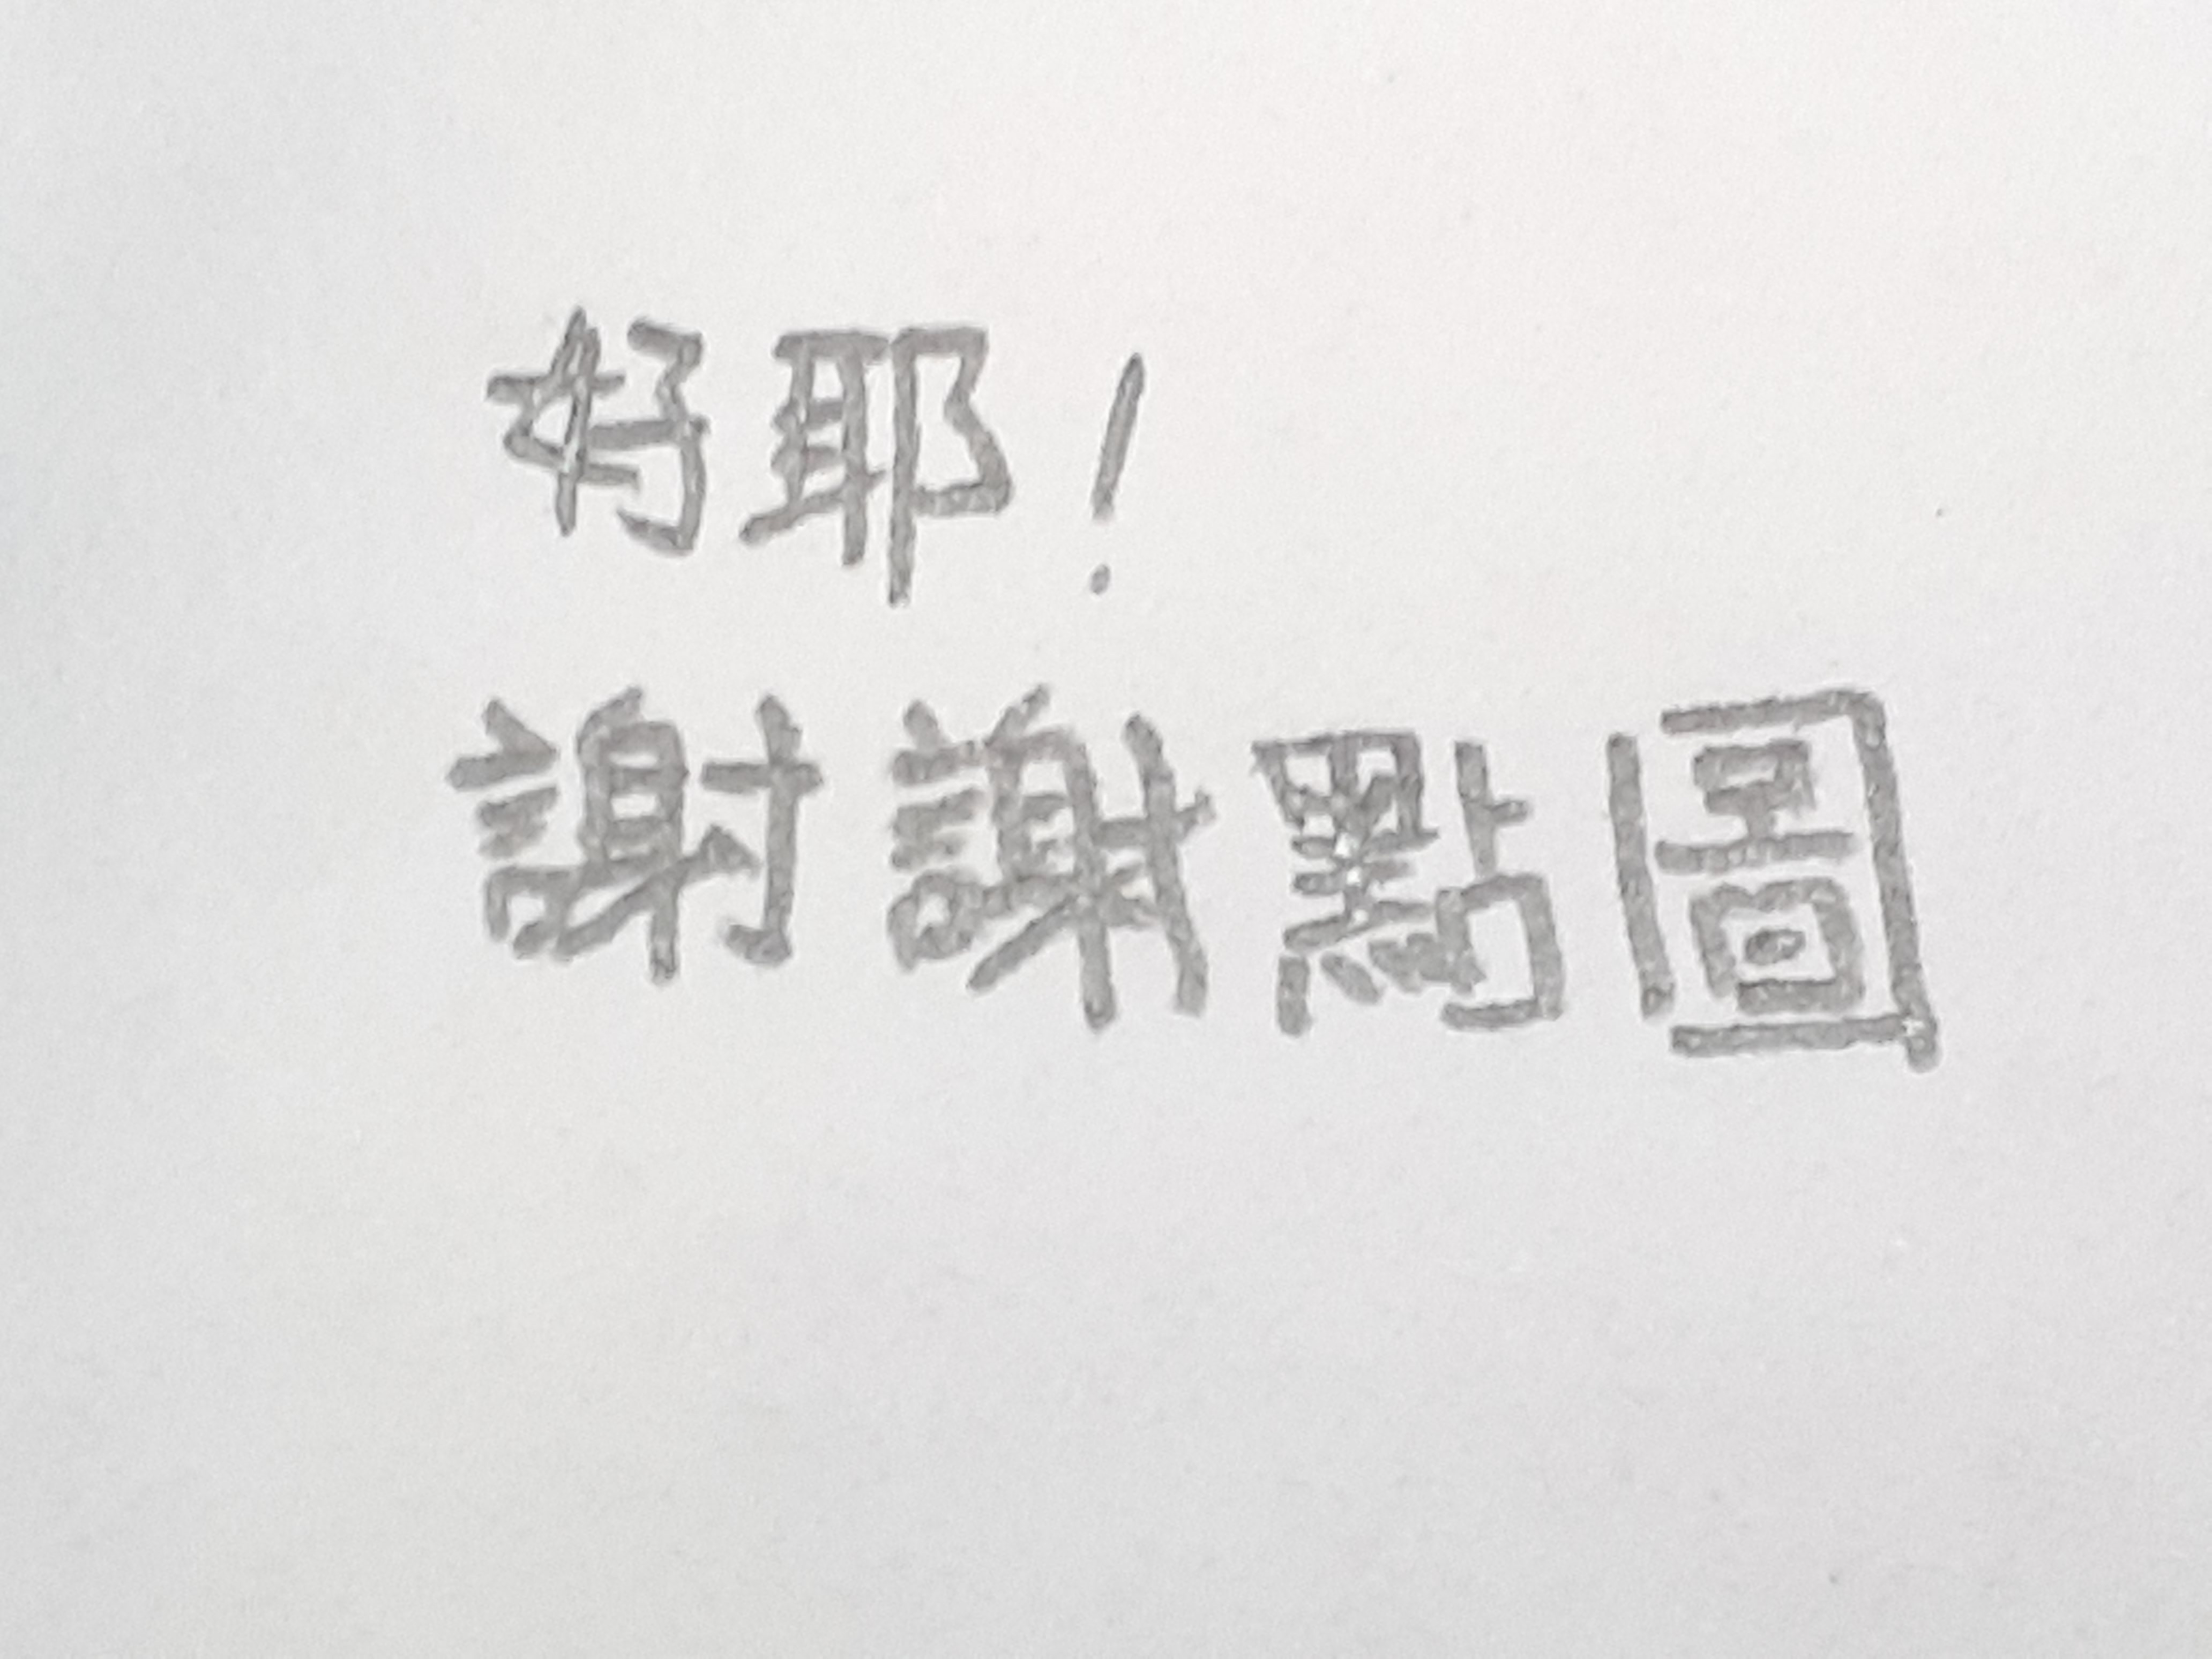 好耶!
謝謝點圖